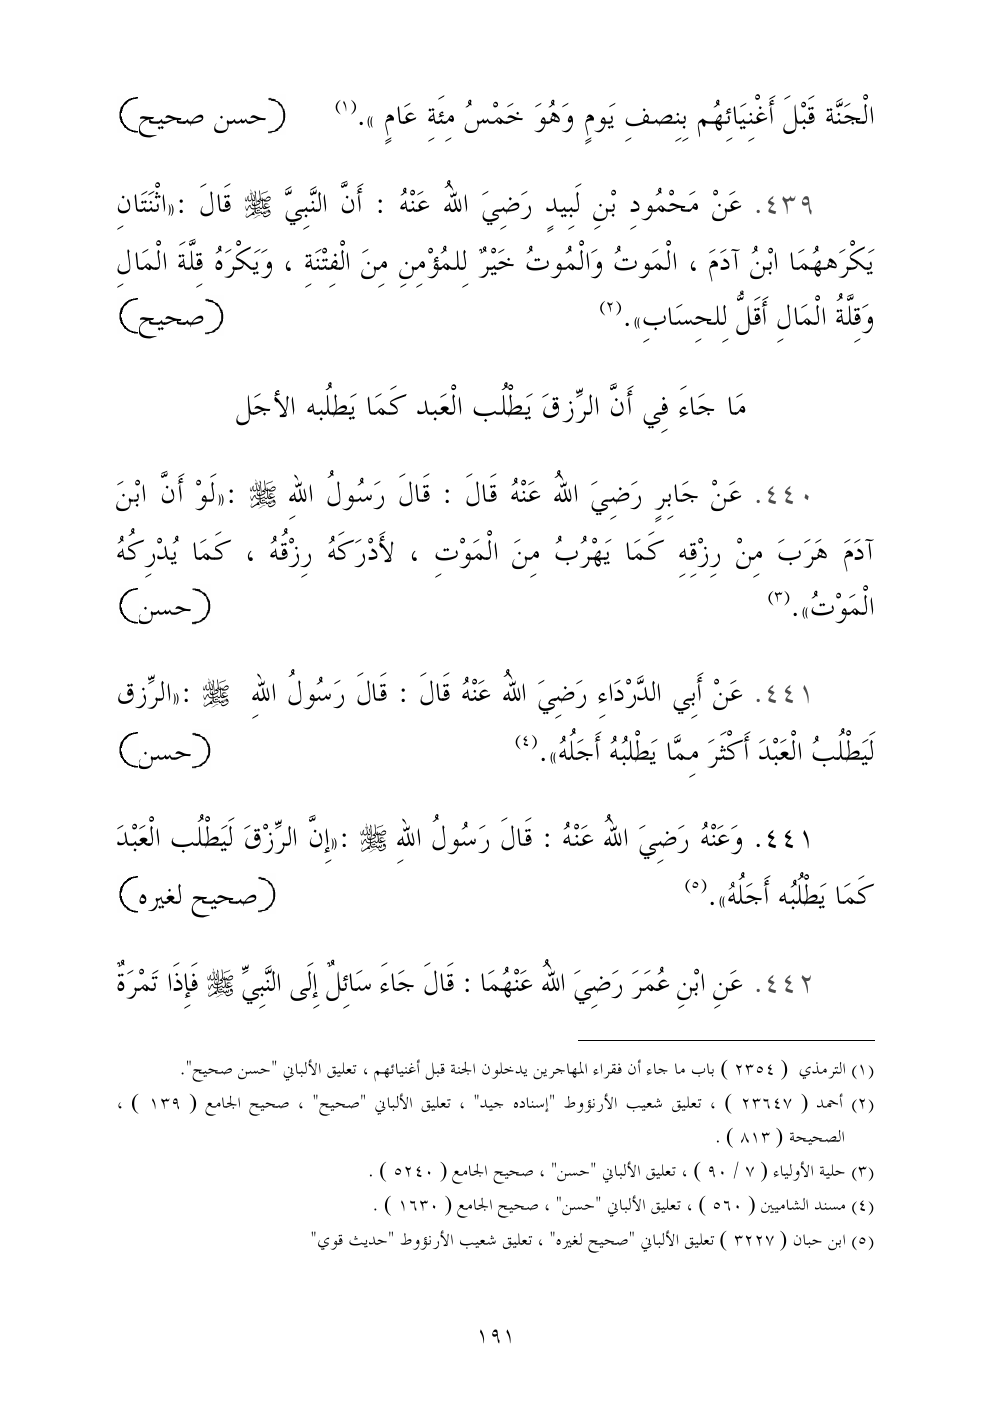 الْجَنَّة قَبْلَ أَغْنِيَائِهُم بِنِصفِ يَومٍ وَهُوَ خَمْسُ مِئَةِ عَامٍ ».(١) (حسن صحيح)
٤٣٩. عَنْ مَحْمُودِ بْنِ لَبِيدٍ رَضِيَ اللهُ عَنْهُ : أَنَّ النَّبِيَّ ﷺ قَالَ :«اثْنَتَانِ
يَكْرَههُمَا ابْنُ آدَمَ ، الْمَوتُ وَالْمُوتُ خَيْرٌ لِلمُؤْمنِ مِنَ الْفِتْنَةِ ، وَيَكْرَهُ قِلَّةَ الْمَالِ
وَقِلَّةُ الْمَالِ أَقَلُّ لِلحِسَابِ».(٢) (صحيح)
مَا جَاءَ فِي أَنَّ الرِّزقَ يَطْلُب الْعَبد كَمَا يَطلُبه الأجَل
٤٤٠. عَنْ جَابِرٍ رَضِيَ اللهُ عَنْهُ قَالَ : قَالَ رَسُولُ اللهِ ﷺ :«لَوْ أَنَّ ابْنَ
آدَمَ هَرَبَ مِنْ رِزْقِهِ كَمَا يَهْرُبُ مِنَ الْمَوْتِ ، لأَدْرَكَهُ رِزْقُهُ ، كَمَا يُدْرِكُهُ
الْمَوْتُ».(٣) (حسن)
٤٤١. عَنْ أَبِي الدَّرْدَاءِ رَضِيَ اللهُ عَنْهُ قَالَ : قَالَ رَسُولُ اللهِ ﷺ :«الرِّزق
لَيَطْلُبُ الْعَبْدَ أَكْثَرَ مِمَّا يَطْلبُهُ أَجَلُهُ».(٤) (حسن)
٤٤١. وَعَنْهُ رَضِيَ اللهُ عَنْهُ : قَالَ رَسُولُ اللهِ ﷺ :«إِنَّ الرِّزْقَ لَيَطْلُب الْعَبْدَ
كَمَا يَطْلُبُه أَجَلُهُ».(٥) (صحيح لغيره)
٤٤٢. عَنِ ابْنِ عُمَرَ رَضِيَ اللهُ عَنْهُمَا : قَالَ جَاءَ سَائِلٌ إِلَى النَّبِيِّ ﷺ فَإِذَا تَمْرَةٌ
(١) الترمذي ( ٢٣٥٤ ) باب ما جاء أن فقراء المهاجرين يدخلون الجنة قبل أغنيائهم ، تعليق الألباني "حسن صحيح".
(٢) أحمد ( ٢٣٦٤٧ ) ، تعليق شعيب الأرنؤوط "إسناده جيد" ، تعليق الألباني "صحيح" ، صحيح الجامع ( ١٣٩ ) ،
الصحيحة ( ٨١٣ ) .
(٣) حلية الأولياء ( ٧ / ٩٠ ) ، تعليق الألباني "حسن" ، صحيح الجامع ( ٥٢٤٠ ) .
(٤) مسند الشاميين ( ٥٦٠ ) ، تعليق الألباني "حسن" ، صحيح الجامع ( ١٦٣٠ ) .
(٥) ابن حبان ( ٣٢٢٧ ) تعليق الألباني "صحيح لغيره" ، تعليق شعيب الأرنؤوط "حديث قوي"
١٩١